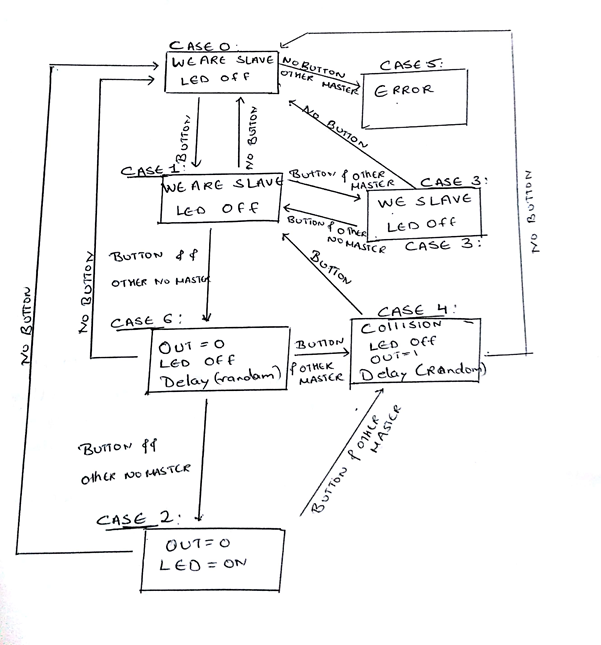 CASE 0:
WE ARE SLAVE
LED OFF
NO BUTTON
OTHER MASTER
CASE 5:
ERROR
BUTTON
NO BUTTON
NO BUTTON
CASE 1:
WE ARE SLAVE
LED OFF
BUTTON & OTHER
MASTER
CASE 3:
WE SLAVE
LED OFF
CASE 3:
BUTTON & OTHER
NO MASTER
NO BUTTON
BUTTON &&
OTHER NO MASTER
BUTTON
CASE 6:
OUT = 0
LED OFF
Delay (random)
BUTTON
& OTHER
MASTER
CASE 4:
COLLISION
LED OFF
OUT=1
Delay (Random)
NO BUTTON
NO BUTTON
BUTTON &&
OTHER NO MASTER
BUTTON & OTHER
MASTER
CASE 2:
OUT = 0
LED = ON